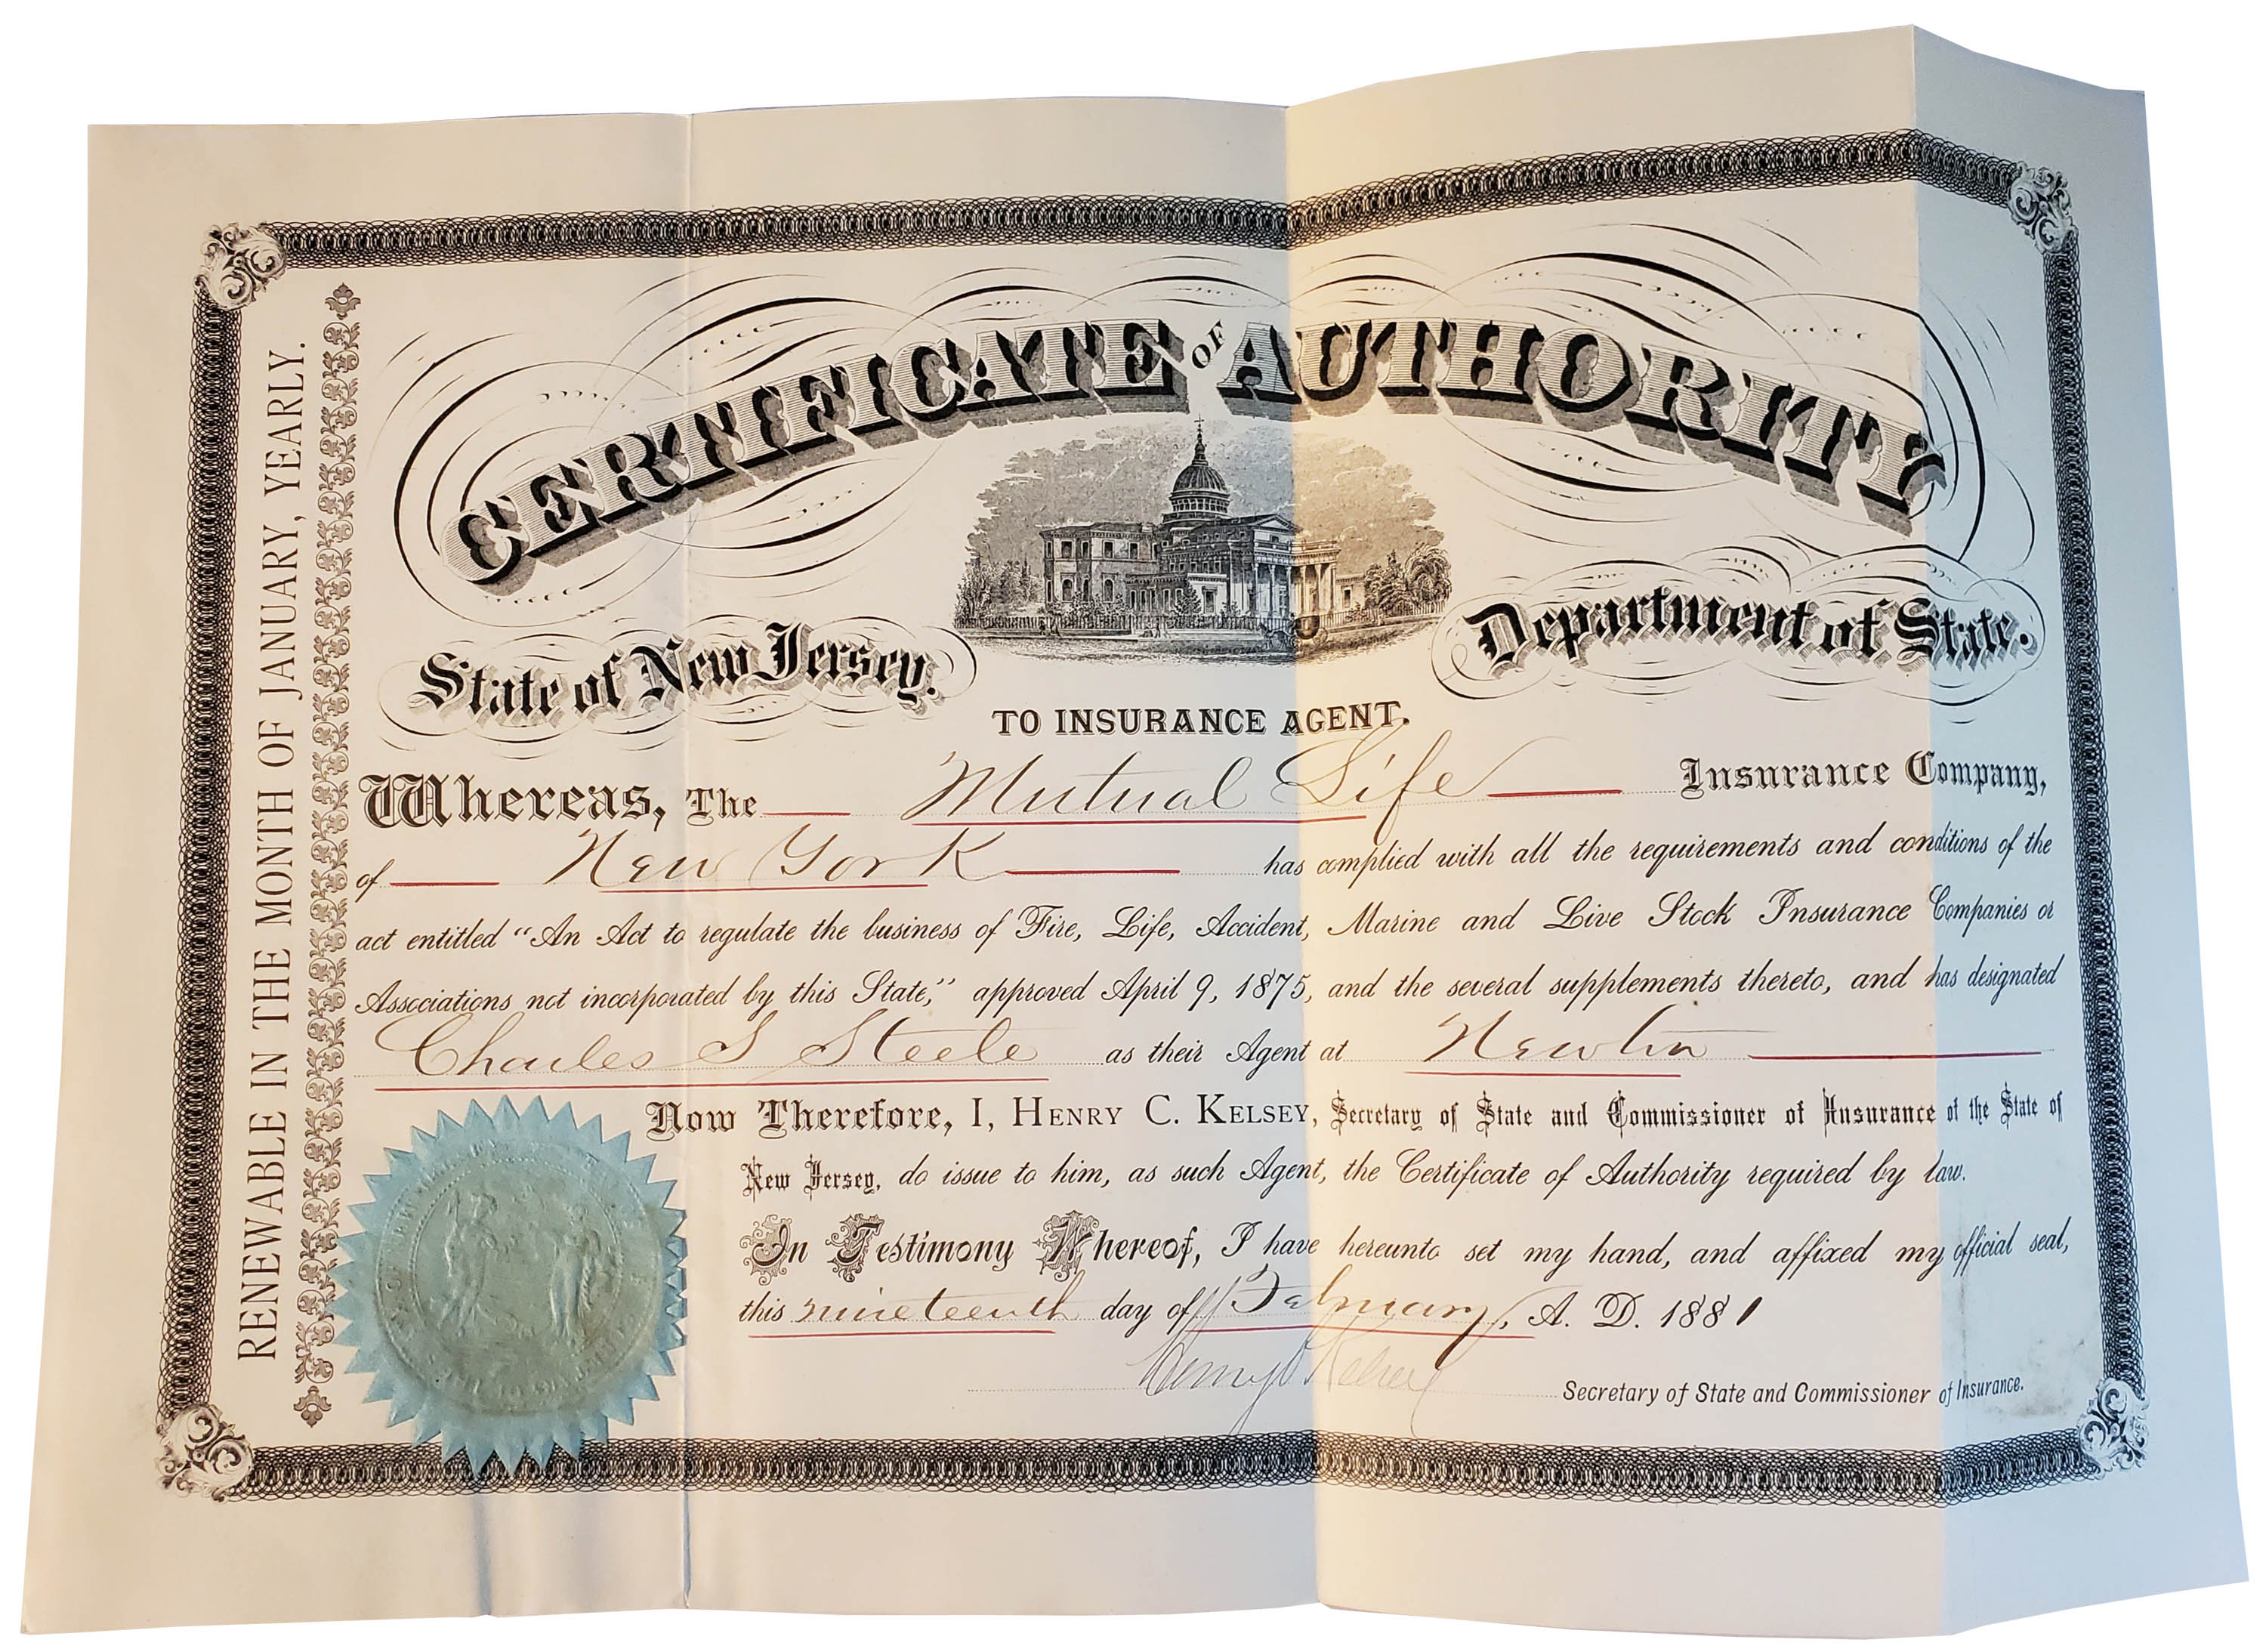 RENEWABLE IN THE MONTH OF JANUARY, YEARLY.
CERTIFICATE OF AUTHORITY
State of New Jersey.
Department of State.
TO INSURANCE AGENT.
Whereas, The Mutual Life Insurance Company,
of New York has complied with all the requirements and conditions of the
act entitled "An Act to regulate the business of Fire, Life, Accident, Marine and Live Stock Insurance Companies or
Associations not incorporated by this State," approved April 9, 1875, and the several supplements thereto, and has designated
Charles S Steele as their Agent at Newton
Now Therefore, I, HENRY C. KELSEY, Secretary of State and Commissioner of Insurance of the State of
New Jersey, do issue to him, as such Agent, the Certificate of Authority required by law.
In Testimony Whereof, I have hereunto set my hand, and affixed my official seal,
this nineteenth day of February, A. D. 1881
Henry C Kelsey Secretary of State and Commissioner of Insurance.